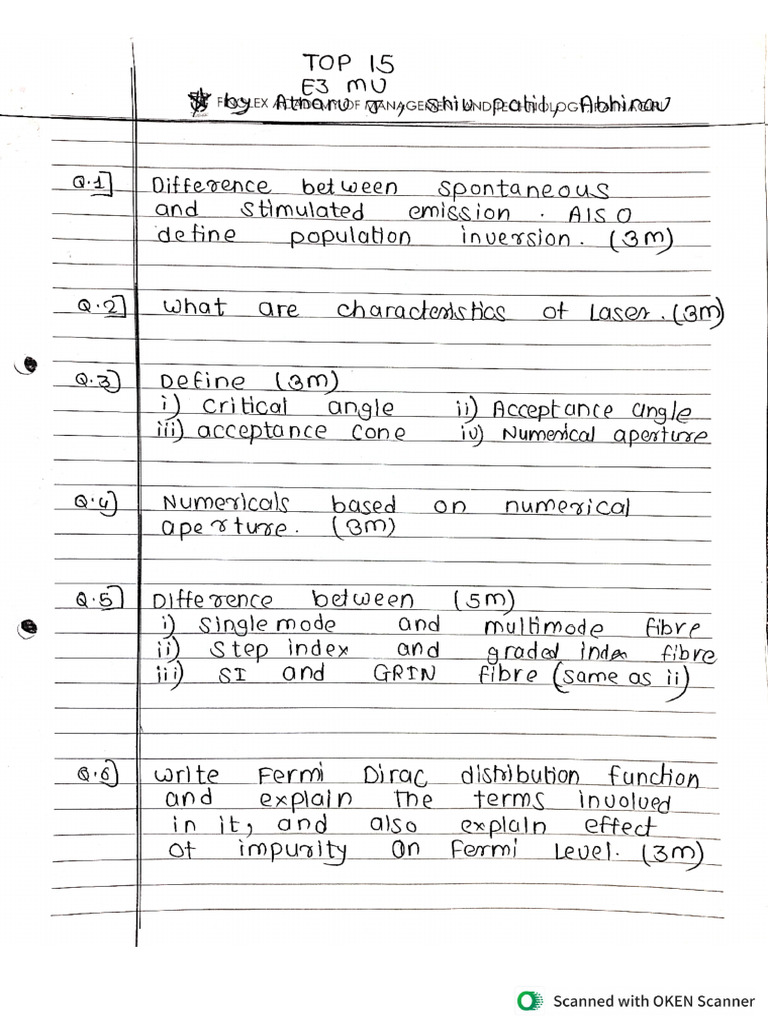 TOP 15
E3 MU
by Atharva, Shiv patil, Abhinav
Q.1] Difference between spontaneous
and stimulated emission. Also
define population inversion. (3m)
Q.2] What are characteristics of Laser. (3m)
Q.3] Define (3m)
i) Critical angle ii) Acceptance angle
iii) acceptance cone iv) Numerical aperture
Q.4] Numericals based on numerical
aperture. (3m)
Q.5] Difference between (5m)
i) Single mode and multimode fibre
ii) Step index and graded index fibre
iii) SI and GRIN fibre (same as ii)
Q.6] Write Fermi Dirac distribution function
and explain the terms involved
in it, and also explain effect
of impurity on Fermi Level. (3m)
Scanned with OKEN Scanner